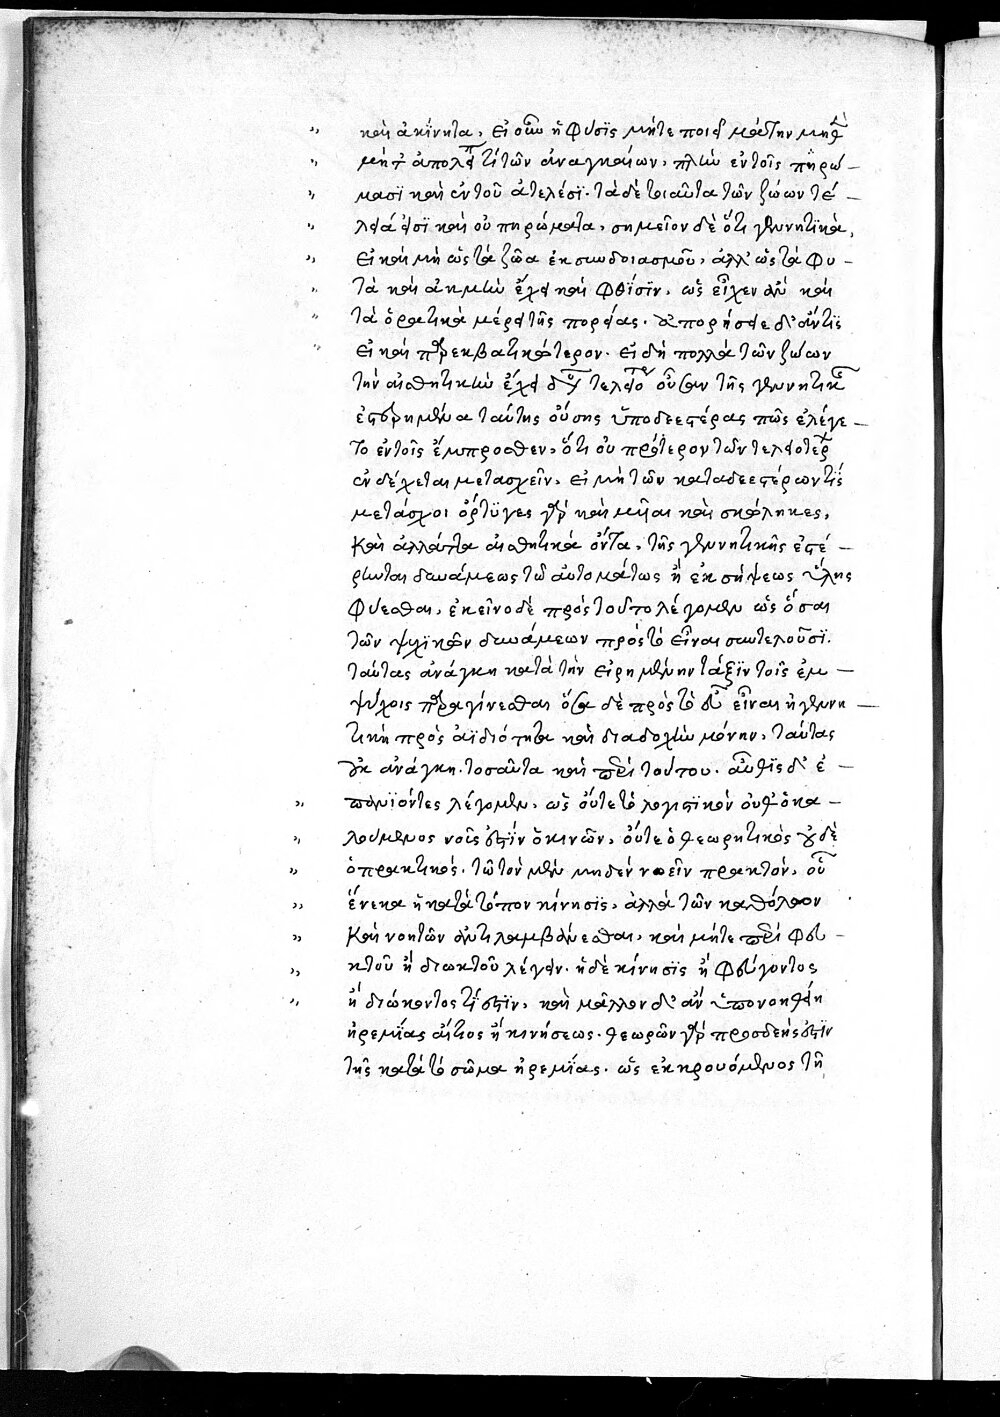 „ καὶ ἀκίνητα. εἰ οὖν ἡ φύσϊς μήτε ποιεῖ μάτην μηθὲν
„ μήτε ἀπολείπει τί τῶν ἀναγκαίων, πλὴν ἐν τοῖς πηρώ-
„ μασϊ καὶ ἐν τοῖς ἀτελέσϊ. τὰ δὲ τοιαῦτα τῶν ζώων τέ-
„ λειά εἰσϊ καὶ οὐ πηρώματα, σημεῖον δὲ ὅτι γεννητικὰ,
„ εἰ καὶ μὴ ὡς τὰ ζῶα ἐκ συνδοιασμοῦ, ἀλλ' ὡς τὰ φυ-
„ τὰ καὶ ἀκμὴν ἔχει καὶ φθίσϊν. ὡς εἶχεν ἂν καὶ
„ τὰ ὀρατικὰ μέρει τῆς πορείας. ἀπορήσειε δ' ἄν τϊς
„ εἰ καὶ παρεκβατικώτερον. εἰ δὴ πολλὰ τῶν ζώων
τὴν αἰσθητικὴν ἔχει δύναμιν τελειοτέραν οὖσαν τῆς γεννητικῆς
ἐστερημένα ταύτης οὔσης ὑποδεεστέρας πῶς ἐλέγε-
το ἐν τοῖς ἔμπροσθεν, ὅτι οὐ πρότερον τῶν τελειοτέρων
ἐνδέχεται μετασχεῖν, εἰ μὴ τῶν καταδεεστέρων τϊς
μετάσχοι ὄρτυγες γὰρ καὶ μυῖαι καὶ σκώληκες,
καὶ ἀλλάττα αἰσθητικὰ ὄντα, τῆς γεννητικῆς ἐστέ-
ρηνται δυνάμεως τῶ αὐτομάτως ἢ ἐκ σήψεως ὕλης
φύεσθαι, ἐκεῖνο δὲ πρὸς τοῦτο λέγομεν ὡς ὅσαι
τῶν ψυχϊκῶν δυνάμεων πρὸς τὸ εἶναι συντελοῦσϊ.
ταύτας ἀνάγκη κατὰ τὴν εἰρημένην τάξϊν τοῖς ἐμ-
ψύχοις παραγίνεσθαι ὅσα δὲ πρὸς τὸ εὖ εἶναι ἡ γεννη-
τικὴ πρὸς ἀϊδιότητα καὶ διαδοχὴν μόνην, ταύτας
οὐκ ἀνάγκη. τοσαῦτα καὶ περὶ τούτου. αὖθϊς δ' ἐ-
„ πανϊόντες λέγομεν, ὡς οὔτε τὸ λογιστϊκὸν οὔθ' ὁ κα-
„ λούμενος νοῦς ἐστϊν ὁ κινῶν, οὔτε ὁ θεωρητικὸς οὐδὲ
„ ὁ πρακτικός. τῶ τὸν μὲν μηδὲν νοεῖν πρακτὸν, οὗ
„ ἕνεκα ἡ κατὰ τόπον κίνησϊς, ἀλλὰ τῶν καθόλου
„ καὶ νοητῶν ἀντιλαμβάνεσθαι, καὶ μήτε περὶ φευ-
„ κτοῦ ἢ διωκτοῦ λέγειν. ἡ δὲ κίνησϊς ἢ φεύγοντος
„ ἢ διώκοντος τί ἐστϊν, καὶ μᾶλλον δ' ἂν ὑπονοηθείη
ἠρεμΐας αἴτιος ἢ κινήσεως. θεωρῶν γὰρ προσδεής ἐστϊν
τῆς κατὰ τὸ σῶμα ἠρεμΐας. ὡς ἐκκρουόμενος τῆ